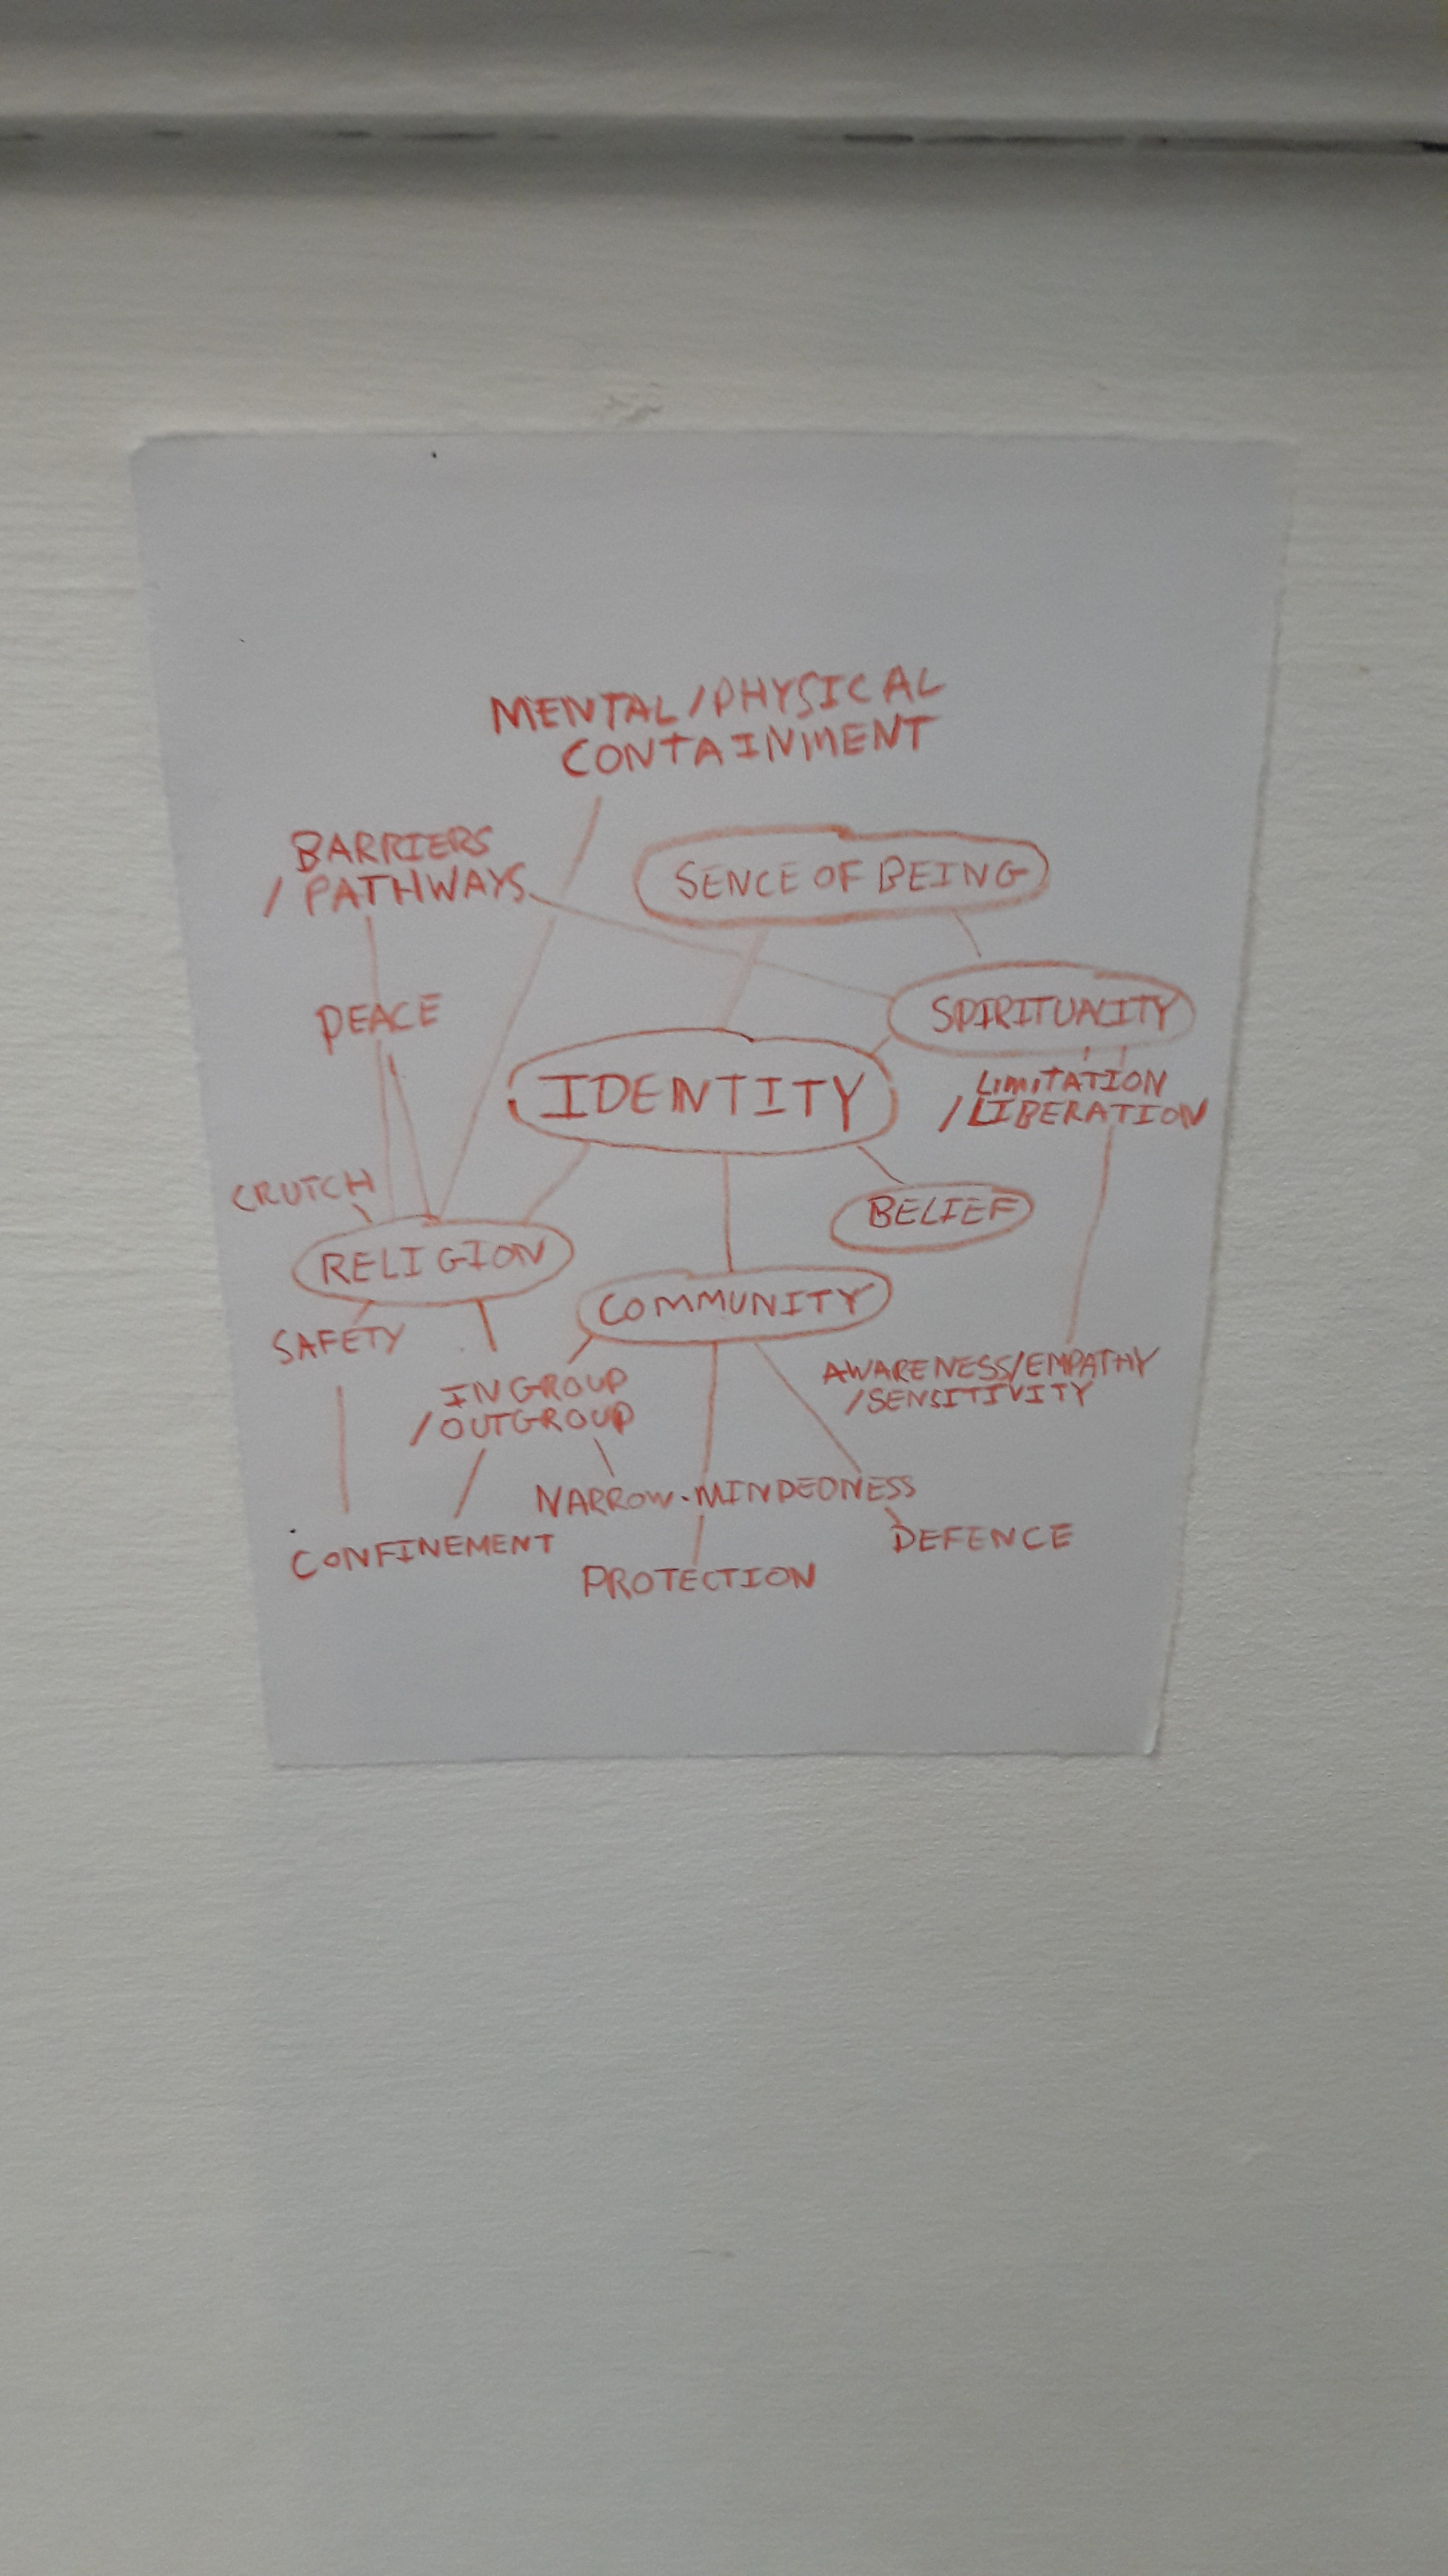 MENTAL/PHYSICAL
CONTAINMENT
BARRIERS
/PATHWAYS
SENCE OF BEING
PEACE
SPIRITUALITY
IDENTITY
LIMITATION
/LIBERATION
CRUTCH
BELIEF
RELIGION
COMMUNITY
SAFETY
INGROUP
/OUTGROUP
AWARENESS/EMPATHY
/SENSITIVITY
NARROW-MINDEDNESS
DEFENCE
CONFINEMENT
PROTECTION